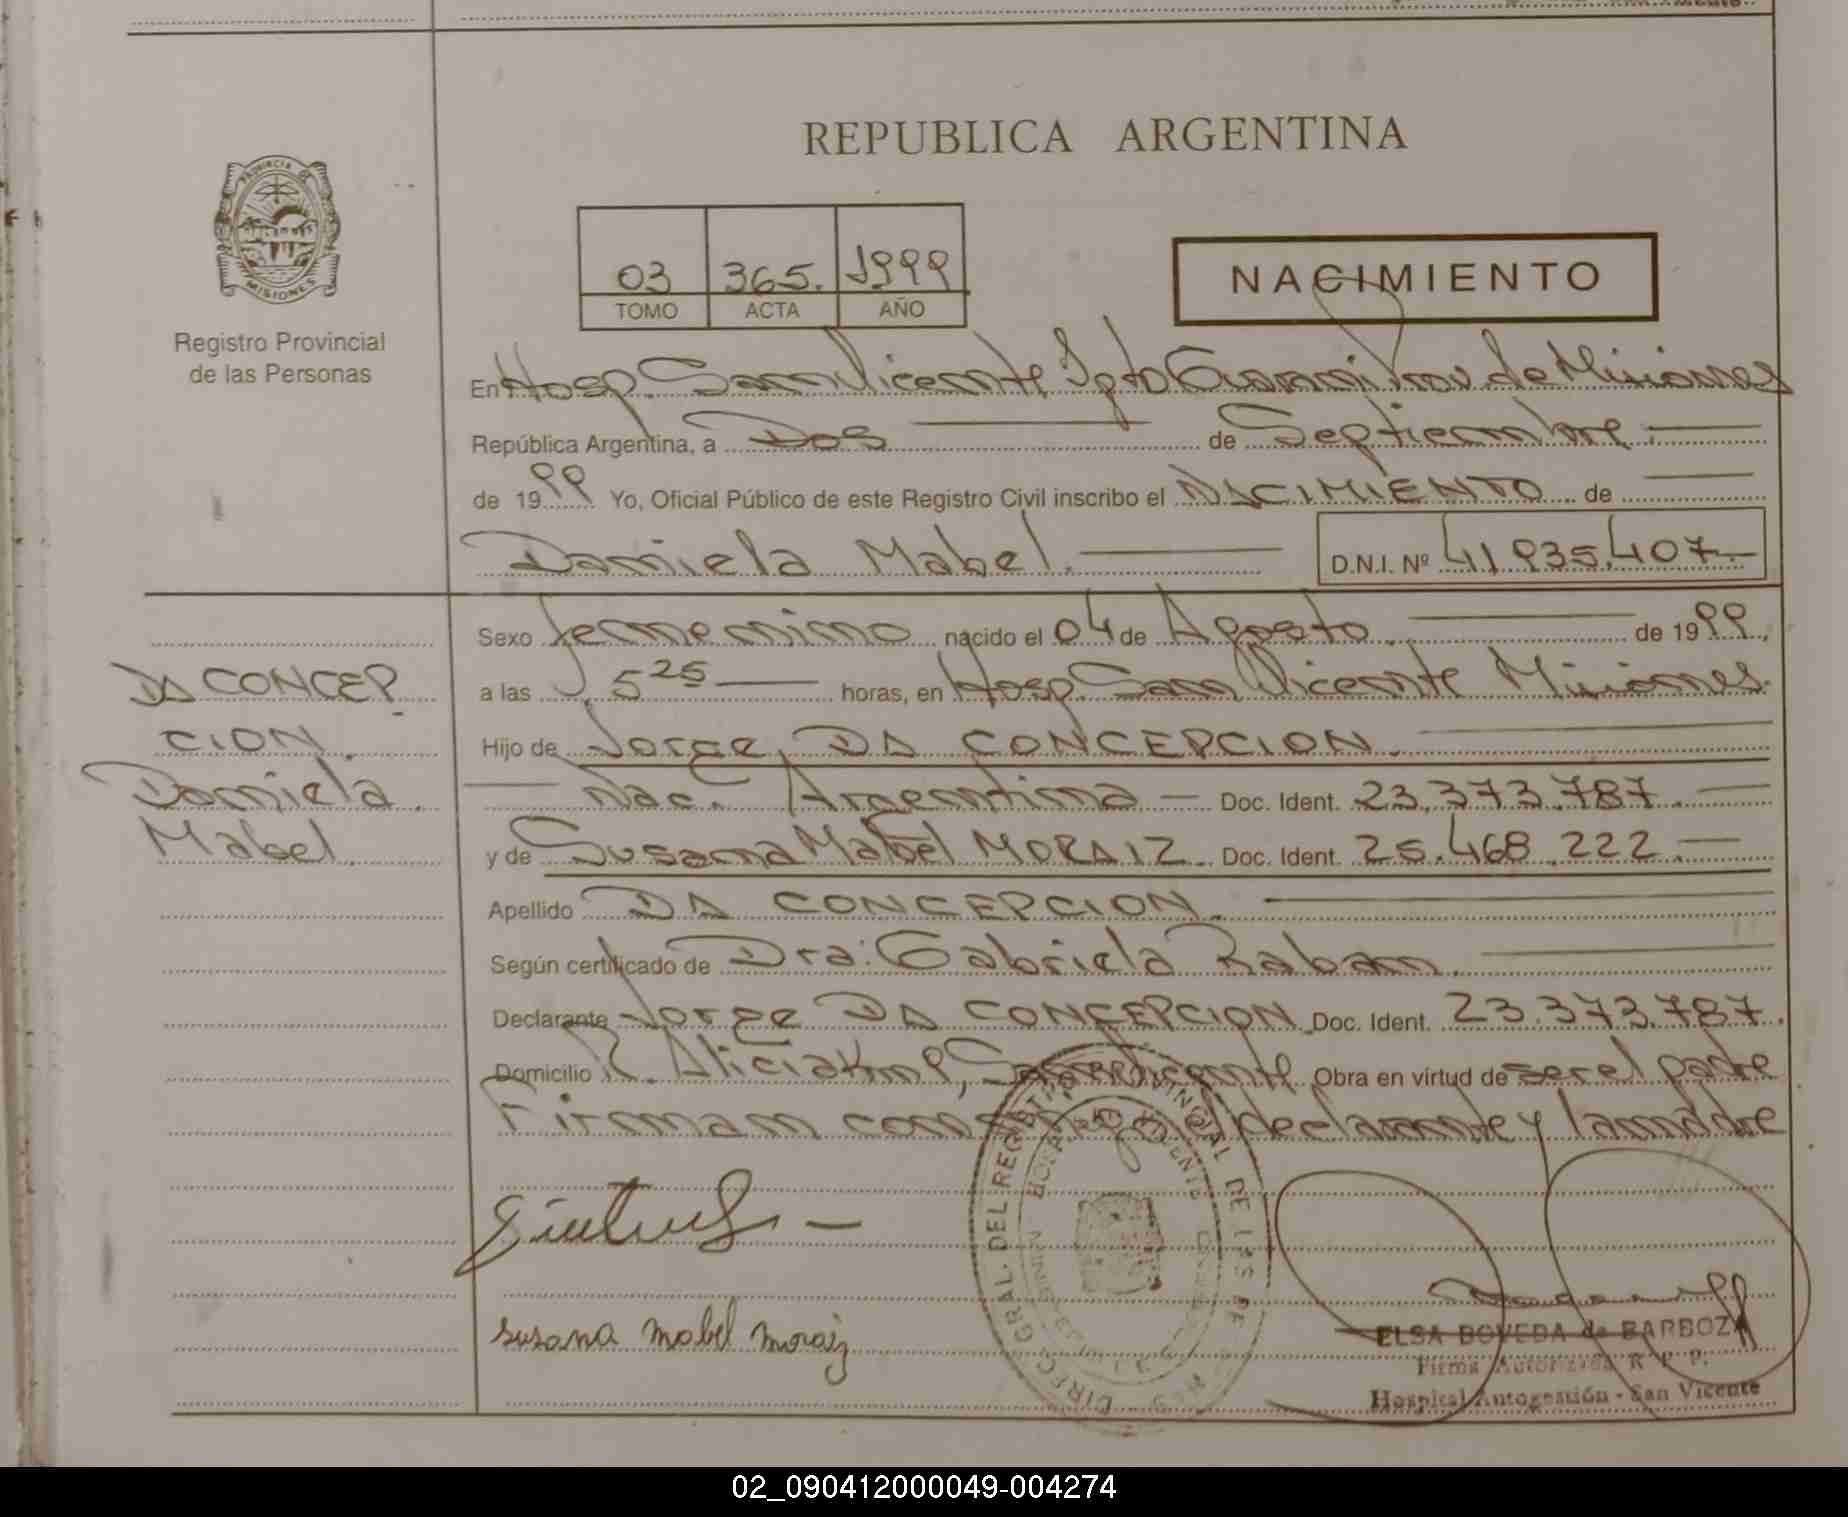 REPUBLICA ARGENTINA
PROVINCIA DE
MISIONES
Registro Provincial
de las Personas
03 365. 1999
TOMO ACTA AÑO
NACIMIENTO
En Hosp. San Vicente Dpto Guarani Prov. de Misiones
República Argentina, a Dos de Septiembre.
de 1999 Yo, Oficial Público de este Registro Civil inscribo el NACIMIENTO de
Daniela Mabel. D.N.I. Nº 41.935.407.
Sexo femenino nacido el 04 de Agosto. de 1999,
a las 5 25 horas, en Hosp. San Vicente Misiones.
Hijo de Jorge DA CONCEPCION.
Nac. Argentina Doc. Ident. 23.373.787.
y de Susana Mabel MORAIZ. Doc. Ident. 25.468.222.
Apellido DA CONCEPCION.
Según certificado de Dra: Gabriela Raban.
Declarante Jorge DA CONCEPCION Doc. Ident. 23.373.787.
Domicilio San Vicente Obra en virtud de ser el padre
Firman declarante y la madre
DA CONCEP
CION.
Daniela.
Mabel.
susana mabel moraiz
DIRECC. GRAL. DEL REGISTRO PROVINCIAL DE LAS
ELSA BOVEDA de BARBOZA
Firma Autorizada R. P. P.
Hospital Autogestión - San Vicente
02_090412000049-004274